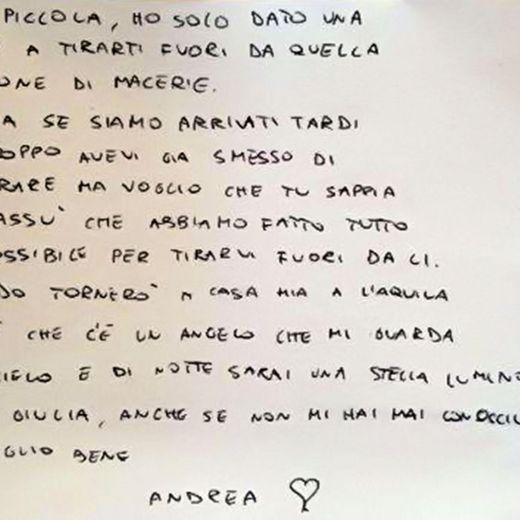 PICCOLA, HO SOLO DATO UNA
A TIRARTI FUORI DA QUELLA
ONE DI MACERIE.
A SE SIAMO ARRIVATI TARDI
OPPO AVEVI GIA SMESSO DI
RARE MA VOGLIO CHE TU SAPPIA
ASSU' CHE ABBIAMO FATTO TUTTO
SSIBILE PER TIRARVI FUORI DA LI.
DO TORNERO' A CASA MIA A L'AQUILA
CHE C'È UN ANGELO CHE MI GUARDA
IELO E DI NOTTE SARAI UNA STELLA LUMINO
GIULIA, ANCHE SE NON MI HAI MAI CONOSCIU
GLIO BENE
ANDREA